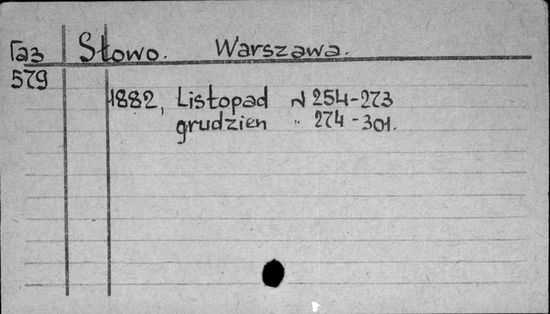 Газ Słowo. Warszawa.
579
1882, Listopad № 254-273
grudzien " 274-301.